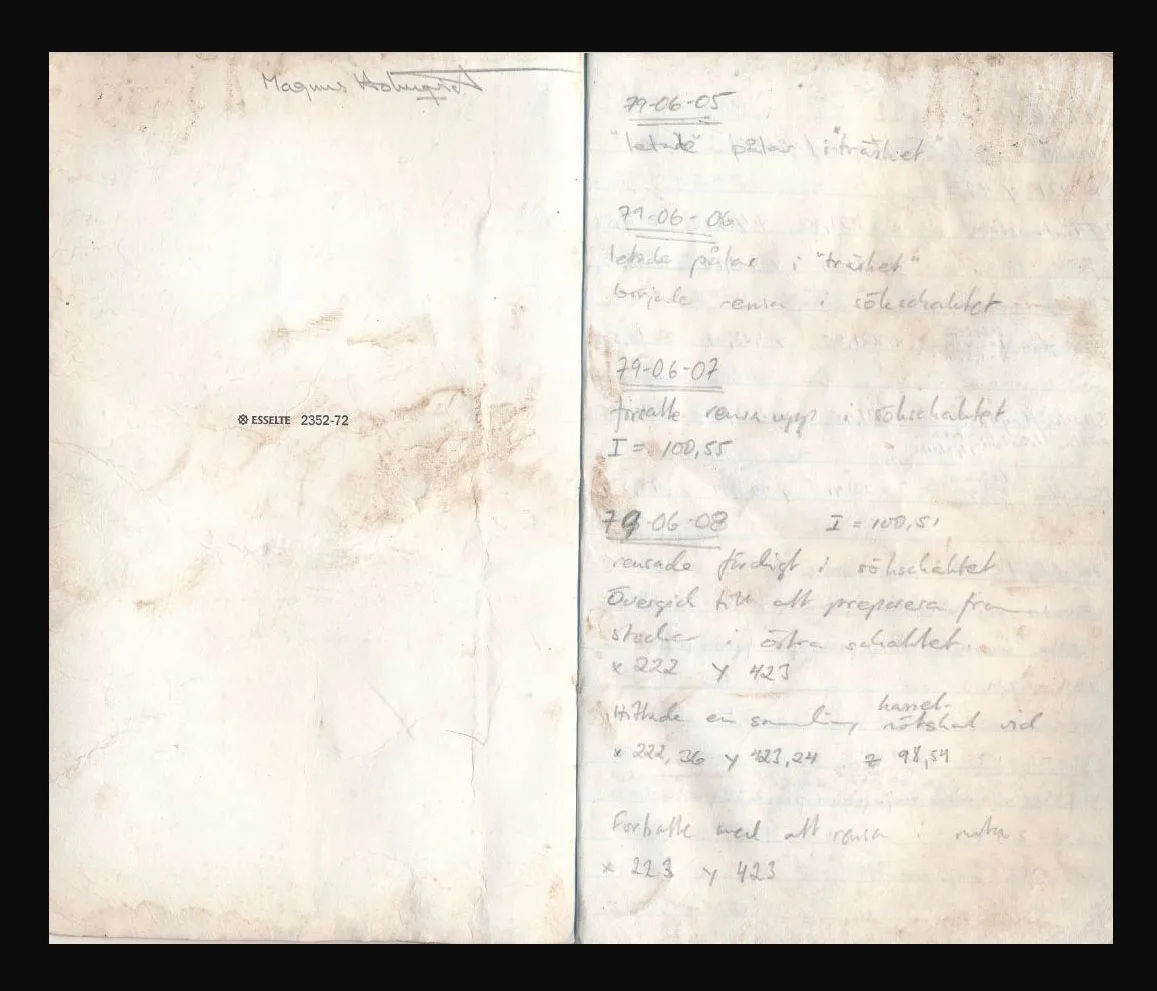 Magnus
ESSELTE 2352-72
79-06-05
"letade" pålar i "träsket"
79-06-06
letade pålar i "träsket"
började rensa i sökschaktet
79-06-07
forsatte rensa upp i sökschaktet
I = 100,55
79-06-08 I = 100,51
rensade färdigt i sökschaktet
Övergick till att preparera fram
stockar i östra schaktet.
x 222 y 423
Hittade en samling hassel-
nötskal vid
x 222,36 y 423,24 z 98,54
Fortsatte med att rensa i
x 223 y 423